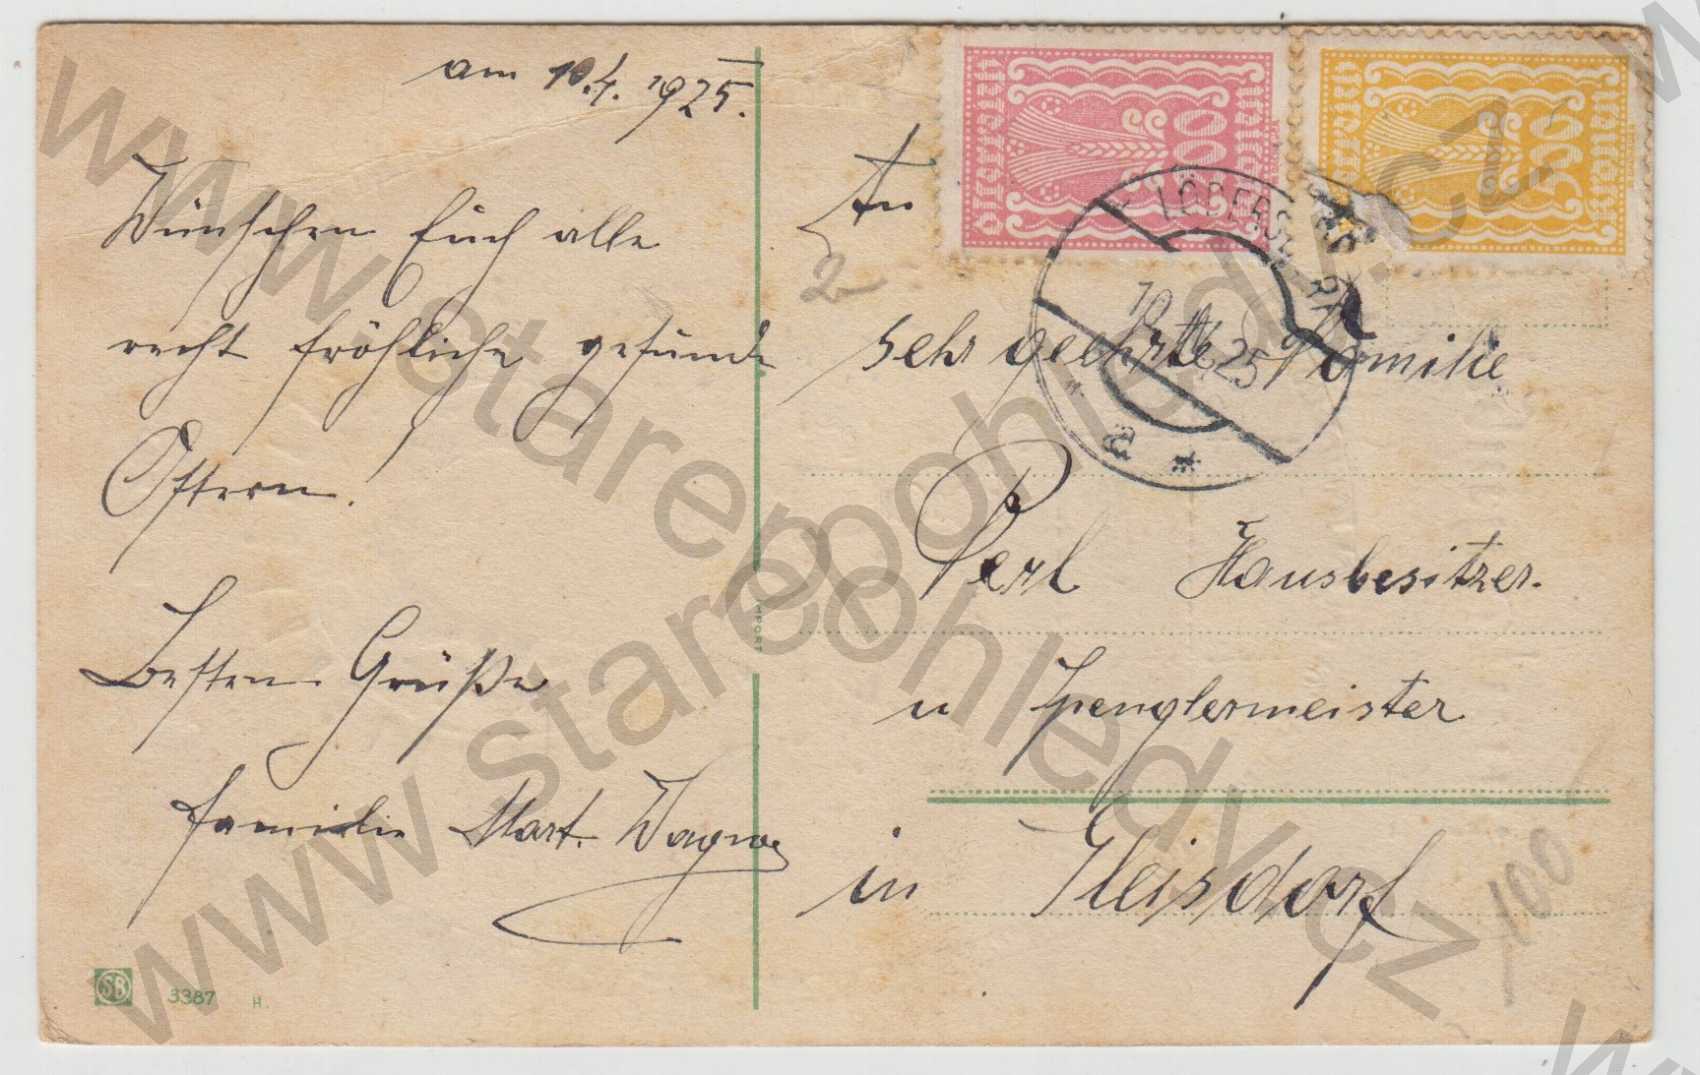 am 10.4. 1925.
Wünschen Euch alle
recht fröhliche gesunde
Ostern.
Besten Grüße
Familie Mart. Wagner
An
2
sehr geehrte Familie
Perl Hausbesitzer
u Spenglermeister
in Gleisdorf
100
Österreich
Kronen
Österreich
500
Kronen
LÖBERSDORF
10.IV.25
a *
SB 3387 H.
www.starepohledy.cz
www.starepohledy.cz